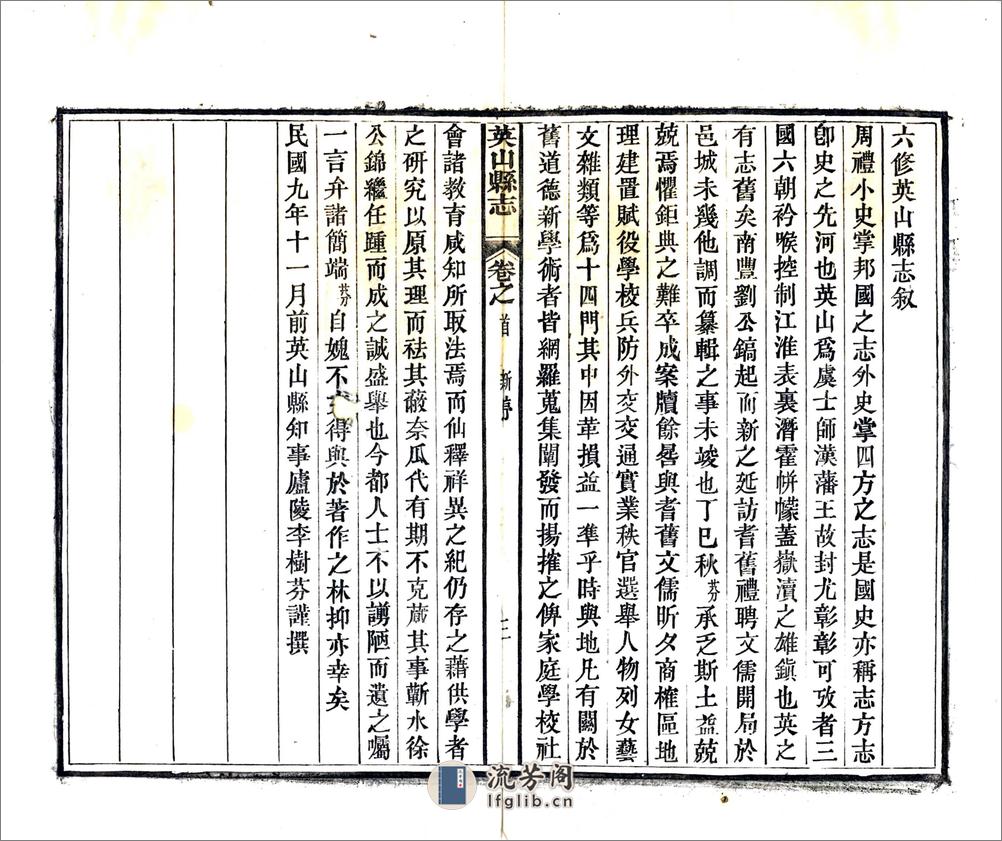 六修英山縣志叙
周禮小史掌邦國之志外史掌四方之志是國史亦稱志方志
卽史之先河也英山爲虞士師漢藩王故封尤彰彰可攷者三
國六朝衿喉控制江淮表裏潛霍帡幪蓋嶽瀆之雄鎭也英之
有志舊矣南豐劉公鎬起而新之延訪耆舊禮聘文儒開局於
邑城未幾他調而纂輯之事未竣也丁巳秋芬承乏斯土益兢
兢焉懼鉅典之難卒成案牘餘晷與耆舊文儒昕夕商榷區地
理建置賦役學校兵防外交交通實業秩官選舉人物列女藝
文雜類等爲十四門其中因革損益一準乎時與地凡有關於
舊道德新學術者皆網羅蒐集闡發而揚搉之俾家庭學校社
英山縣志 卷之首 新序 三
會諸教育咸知所取法焉而仙釋祥異之紀仍存之藉供學者
之研究以原其理而祛其蔽奈瓜代有期不克蕆其事蘄水徐
公錦繼任踵而成之誠盛舉也今都人士不以謭陋而遺之囑
一言弁諸簡端芬自媿不文得與於著作之林抑亦幸矣
民國九年十一月前英山縣知事廬陵李樹芬謹撰
流芳阁
lfglib.cn